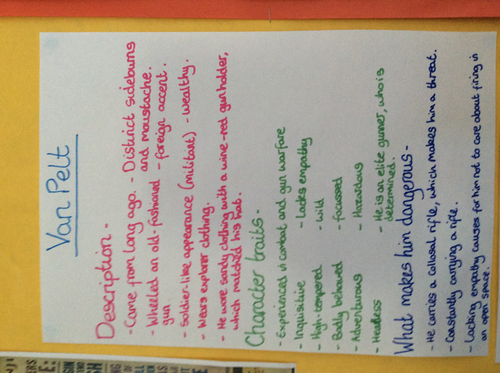 Van Pelt
Description -
- Came from long ago. - Distinct sideburns and moustache.
- Wheeled an old fashioned gun. - foreign accent.
- Soldier-like appearance (militant) - wealthy.
- Wears explorer clothing.
- He wore sandy clothing with a wine-red gun holder,
which matched his hat.
Character traits -
- Experienced in combat and gun warfare
- Inquisitive - Lacks empathy
- High-tempered - wild
- Badly behaved - Focussed
- Adventurous - Hazardous
- Heartless - He is an elite gunner, who is determined.
What makes him dangerous -
- He carries a collosal rifle, which makes him a threat.
- Constantly carrying a rifle.
- Lacking empathy causes for him not to care about firing in
an open space.